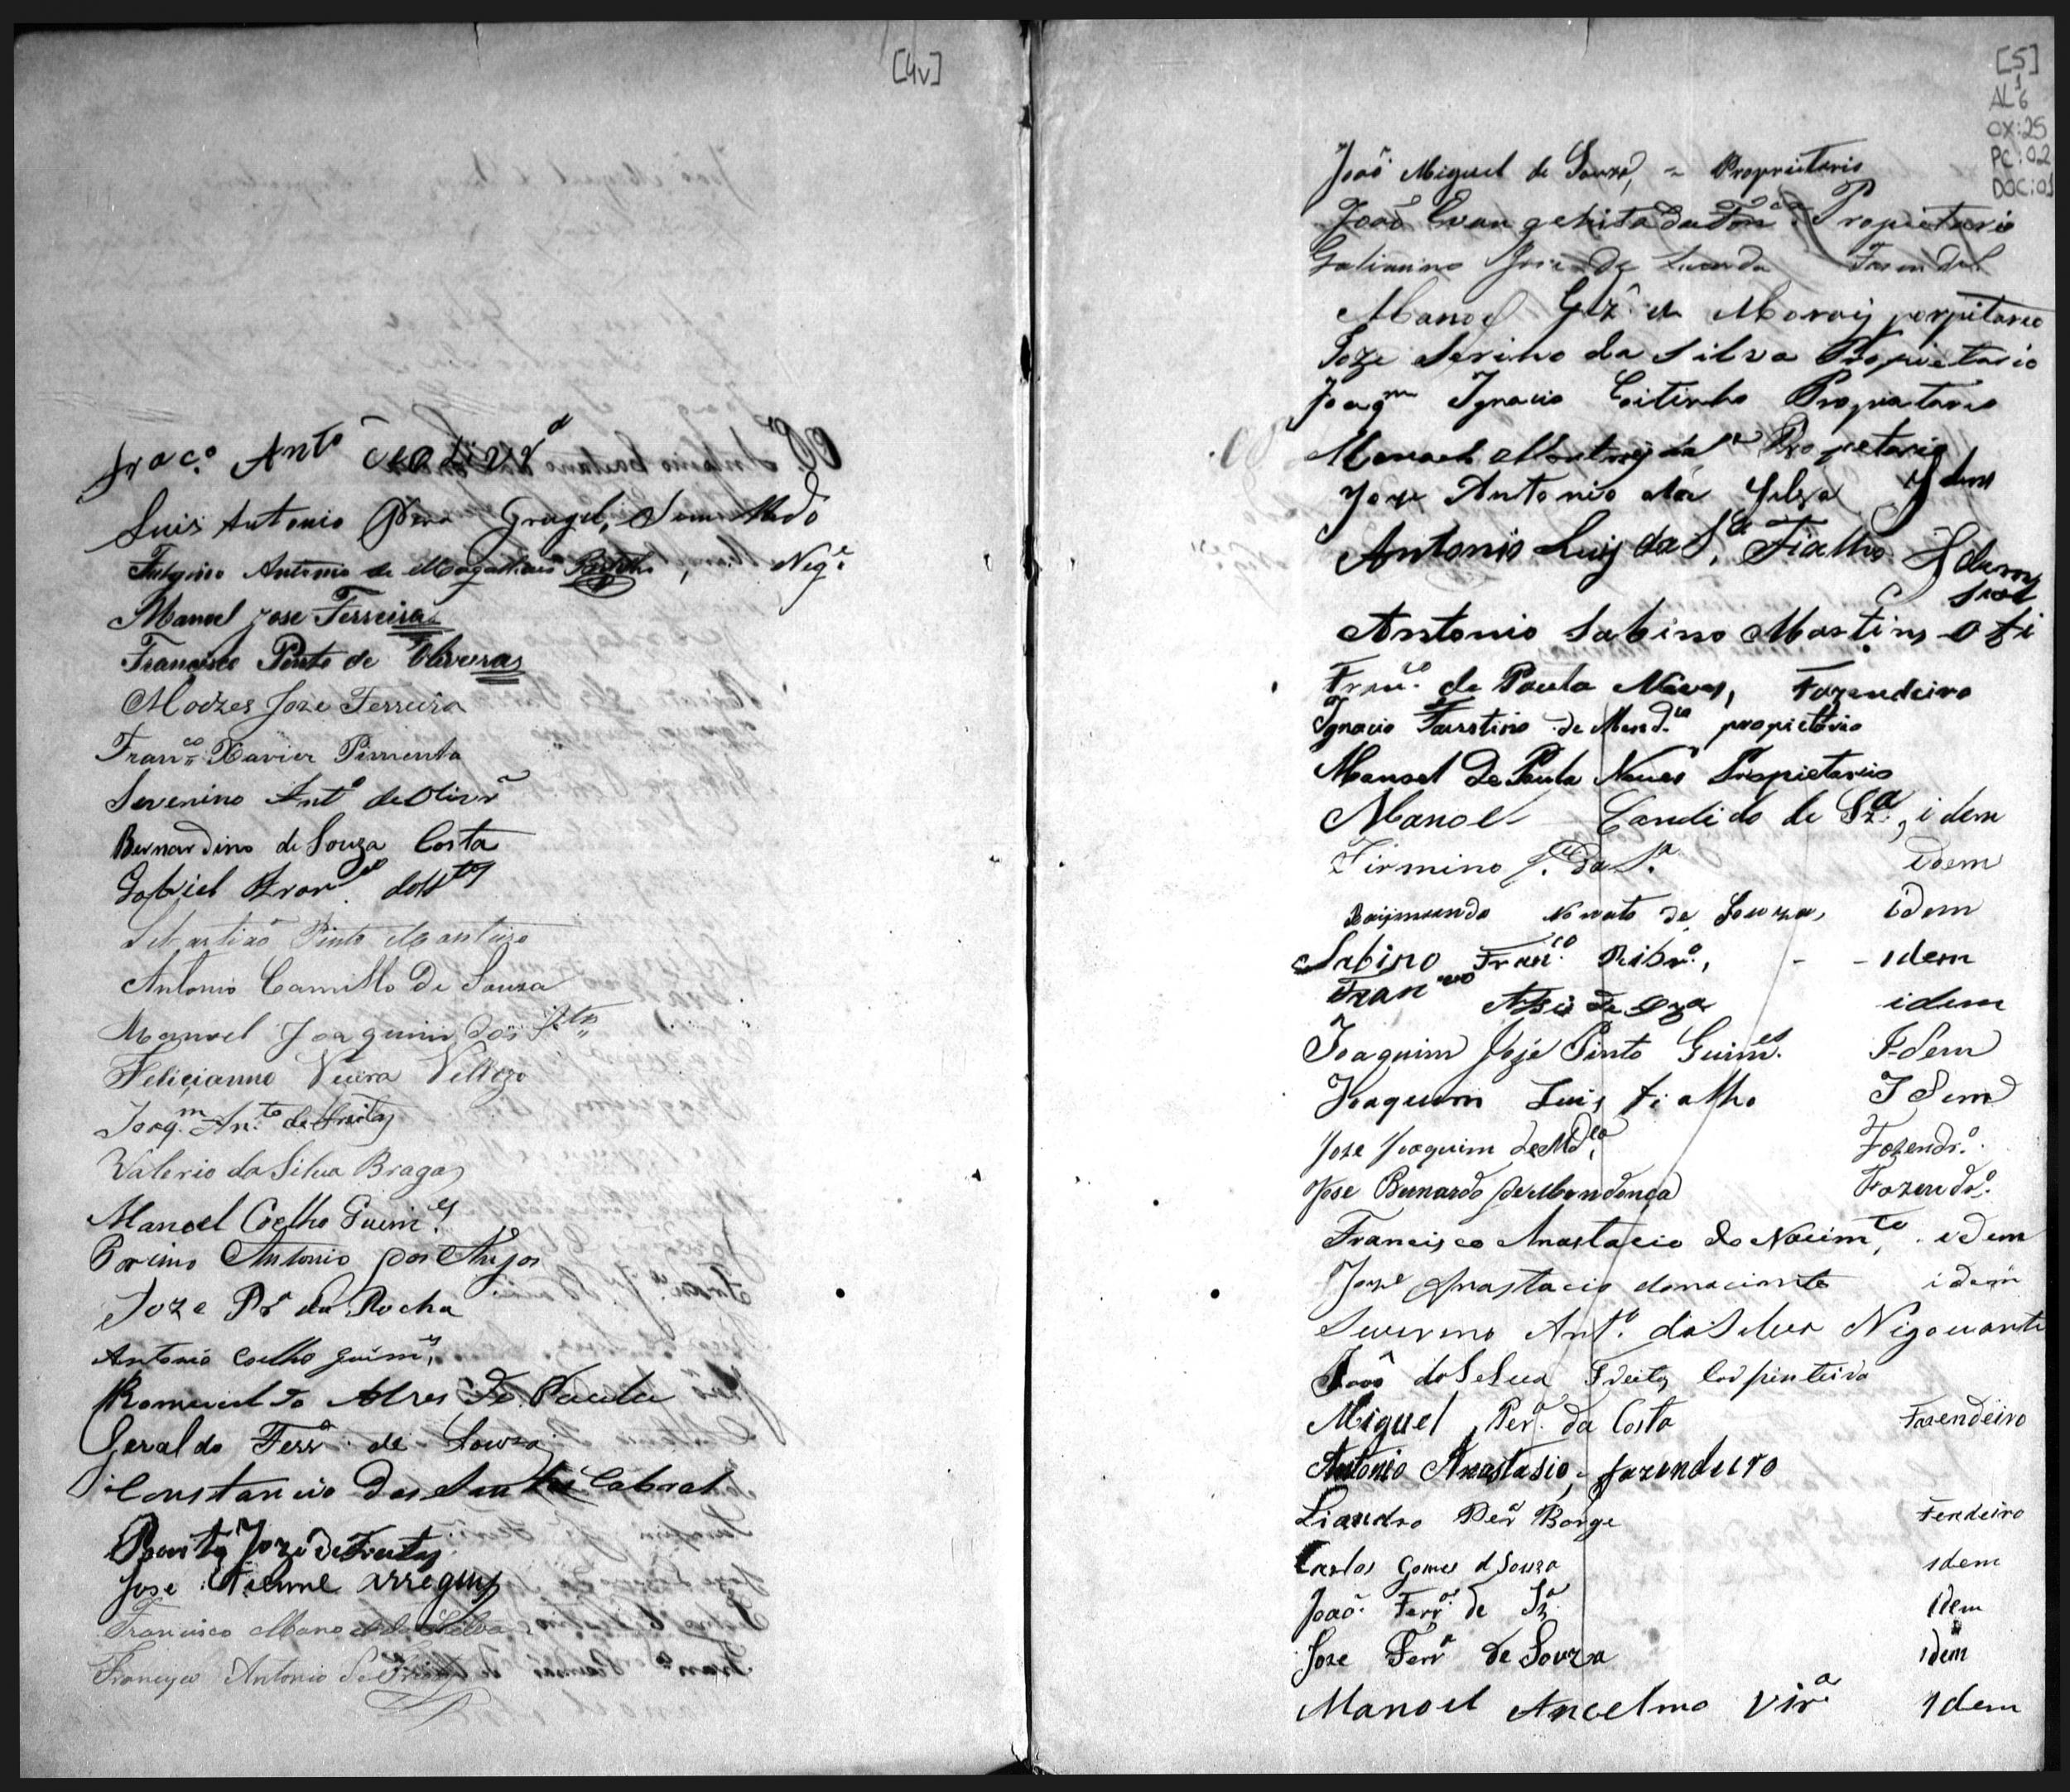 [4v]
Frac.º Antº de Olivrª
Luis Antonio Gurgel,
Fulgino Antonio de Magalhães Botelho, Nege
Manoel Jose Ferreira
Francisco Pinto de Oliveira
Moizes Joze Ferreira
Franco Xavier Pimenta
Severino Antº de Olivrª
Bernardino de Souza Costa
Gabriel Franco. dos Stos
Sebastiaõ Pinto Monteiro
Antonio Camillo de Souza
Manoel Joaquim dos Stos
Felicianno Vieira Vellozo
Joaqm. Anto. de Freitas
Valerio da Silva Braga
Manoel Coelho Guimes
Firmino Antonio dos Anjos
Joze Prª da Rocha
Antonio Coelho Guimes
Romualdo Alves de Paula
Geraldo Ferrª de Souza
Constancio dos Santos Cabral
José de Freitas
Jose
Francisco Manoel da Silva
Francisco Antonio de
[5]
AL 6
CX:25
PC:02
DOC:01
João Miguel de Souza, = Proprietario
João Evangelista da Propietario
Jose de
Manoel Glz de Morais porpitareo
Joze Serino da Silva Propietario
Joaqm Ignacio Coitinho Propiatario
Manoel Martins da Sª Propetario
Joze Antonio da Silva Idem
Antonio Luis da S.ª Fialho Idem
Antonio Sabino Martins
Franco. de Paula Neves, Fazendeiro
Ignacio Faustino de Mend.ça propietario
Manoel de Paula Neves Propietario
Manoel Candido de Sza, idem
Firmino J. da Sª idem
Raijmundo Nonato de Souza, idem
Sabino Franco. Ribrº, - - idem
Franco de Sza idem
Joaquim Joze Pinto Guimes. Idem
Joaquim Luis Fialho Idem
Joze Joaquim de Mdça Fazendrº.
Jose Bernardo de Mendonça Fazendrº.
Francisco Anastacio do Nacimto, idem
Joze Anastacio donacimto idem
Severino Antº. da Silva Nigociante
João da Selva Freitas Carpinteiro
Miguel Perª. da Costa Fazendeiro
Antonio Anastasio, fazendeiro
Liandro Perª Borge Fendeiro
Carlos Gomes d Souza idem
João Ferrª. de Szª. idem
Jose Ferrª de Souza idem
Manoel Ancelmo Virª idem